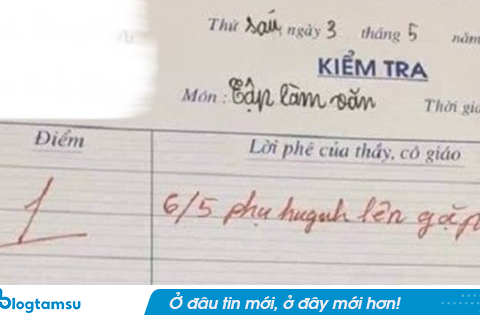 Thứ sáu, ngày 3 tháng 5 năm
KIỂM TRA
Môn: Tập làm văn Thời gia
Điểm
Lời phê của thầy, cô giáo
1
6/5 phụ huynh lên gặp
blogtamsu
Ở đâu tin mới, ở đây mới hơn!